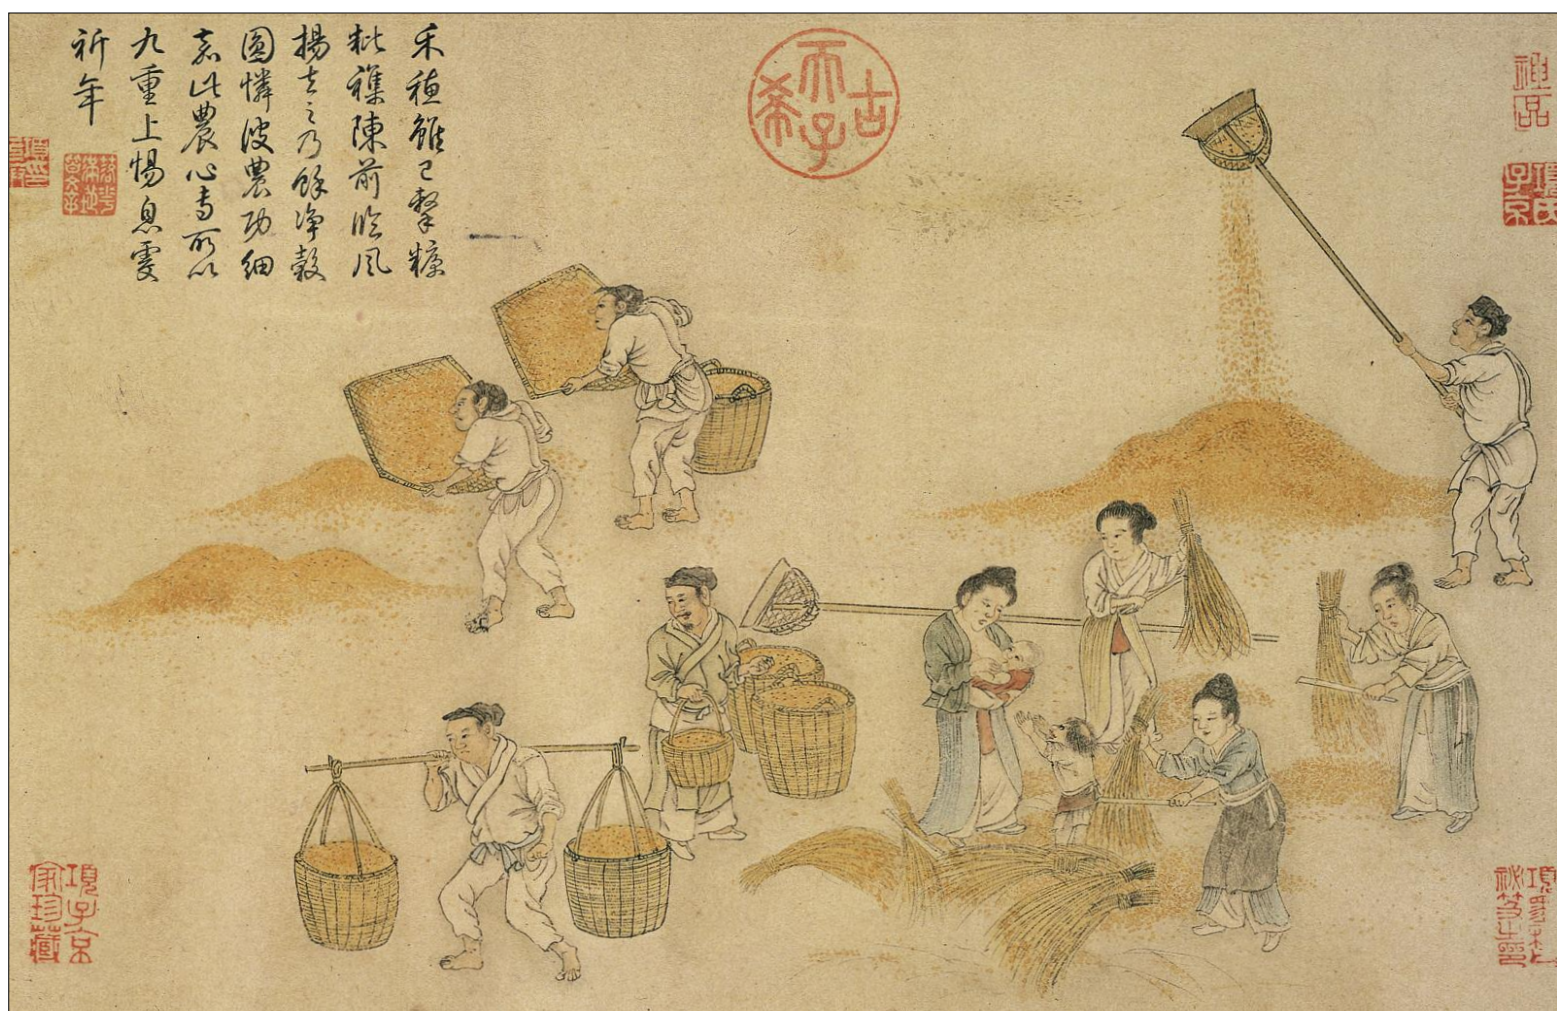 禾穗雖已擊糠
粃襍陳前臨風
揚去之乃餘淨穀
圓憐彼農功細
嘉此農心專所以
九重上惕息虔
祈年
古希天子
神品
項氏
子京
項子京
家珍藏